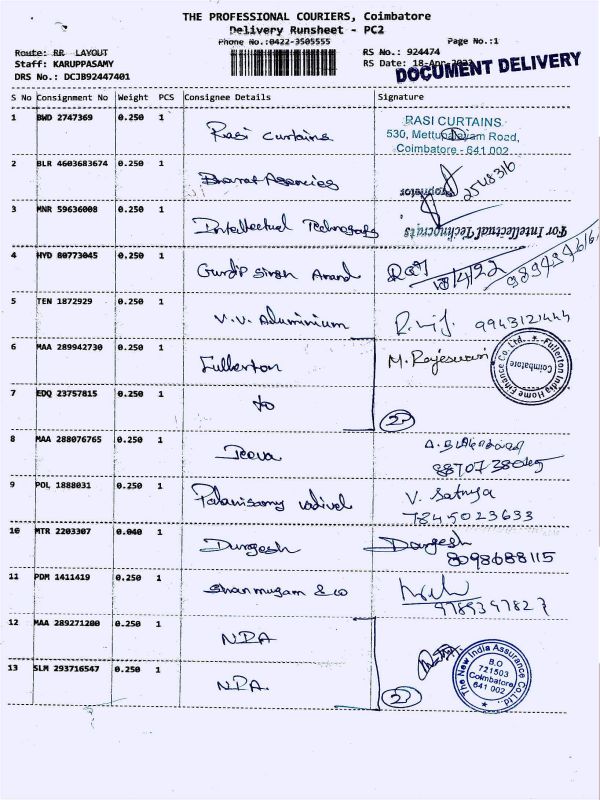 THE PROFESSIONAL COURIERS, Coimbatore
Delivery Runsheet - PC2
Phone No.:0422-3505555
Page No.:1
Route: RR LAYOUT
RS No.: 924474
Staff: KARUPPASAMY
RS Date: 18-Apr-2022
DOCUMENT DELIVERY
DRS No.: DCJB92447401
S No Consignment No Weight PCS Consignee Details Signature
1 BWD 2747369 0.250 1 Rasi Curtains
RASI CURTAINS
530, Mettupalayam Road,
Coimbatore - 641 002
2 BLR 4603683674 0.250 1 Bharat Agencies
Proprietor
3 MNR 59636008 0.250 1 Intellectual
For Intellectual Technocrats
4 HYD 80773045 0.250 1 Gurdip Singh Anand
18/4/22
5 TEN 1872929 0.250 1 V.V. Aluminium
9943121444
6 MAA 289942730 0.250 1 Fullerton M. Rajeswari
Fullerton India Home Finance Co. Ltd.
Coimbatore
7 EDQ 23757815 0.250 1 to
2
8 MAA 288076765 0.250 1
9 POL 1888031 0.250 1 Palanisamy Vadivel V. Sathya
7845023633
10 MTR 2203307 0.040 1 Durgesh Durgesh
8098688115
11 PDM 1411419 0.250 1 Shanmugam & co
9789397827
12 MAA 289271200 0.250 1 NIA
The New India Assurance Co. Ltd.
B.O
721503
Coimbatore
641 002
13 SLM 293716547 0.250 1 N.I.A.
2